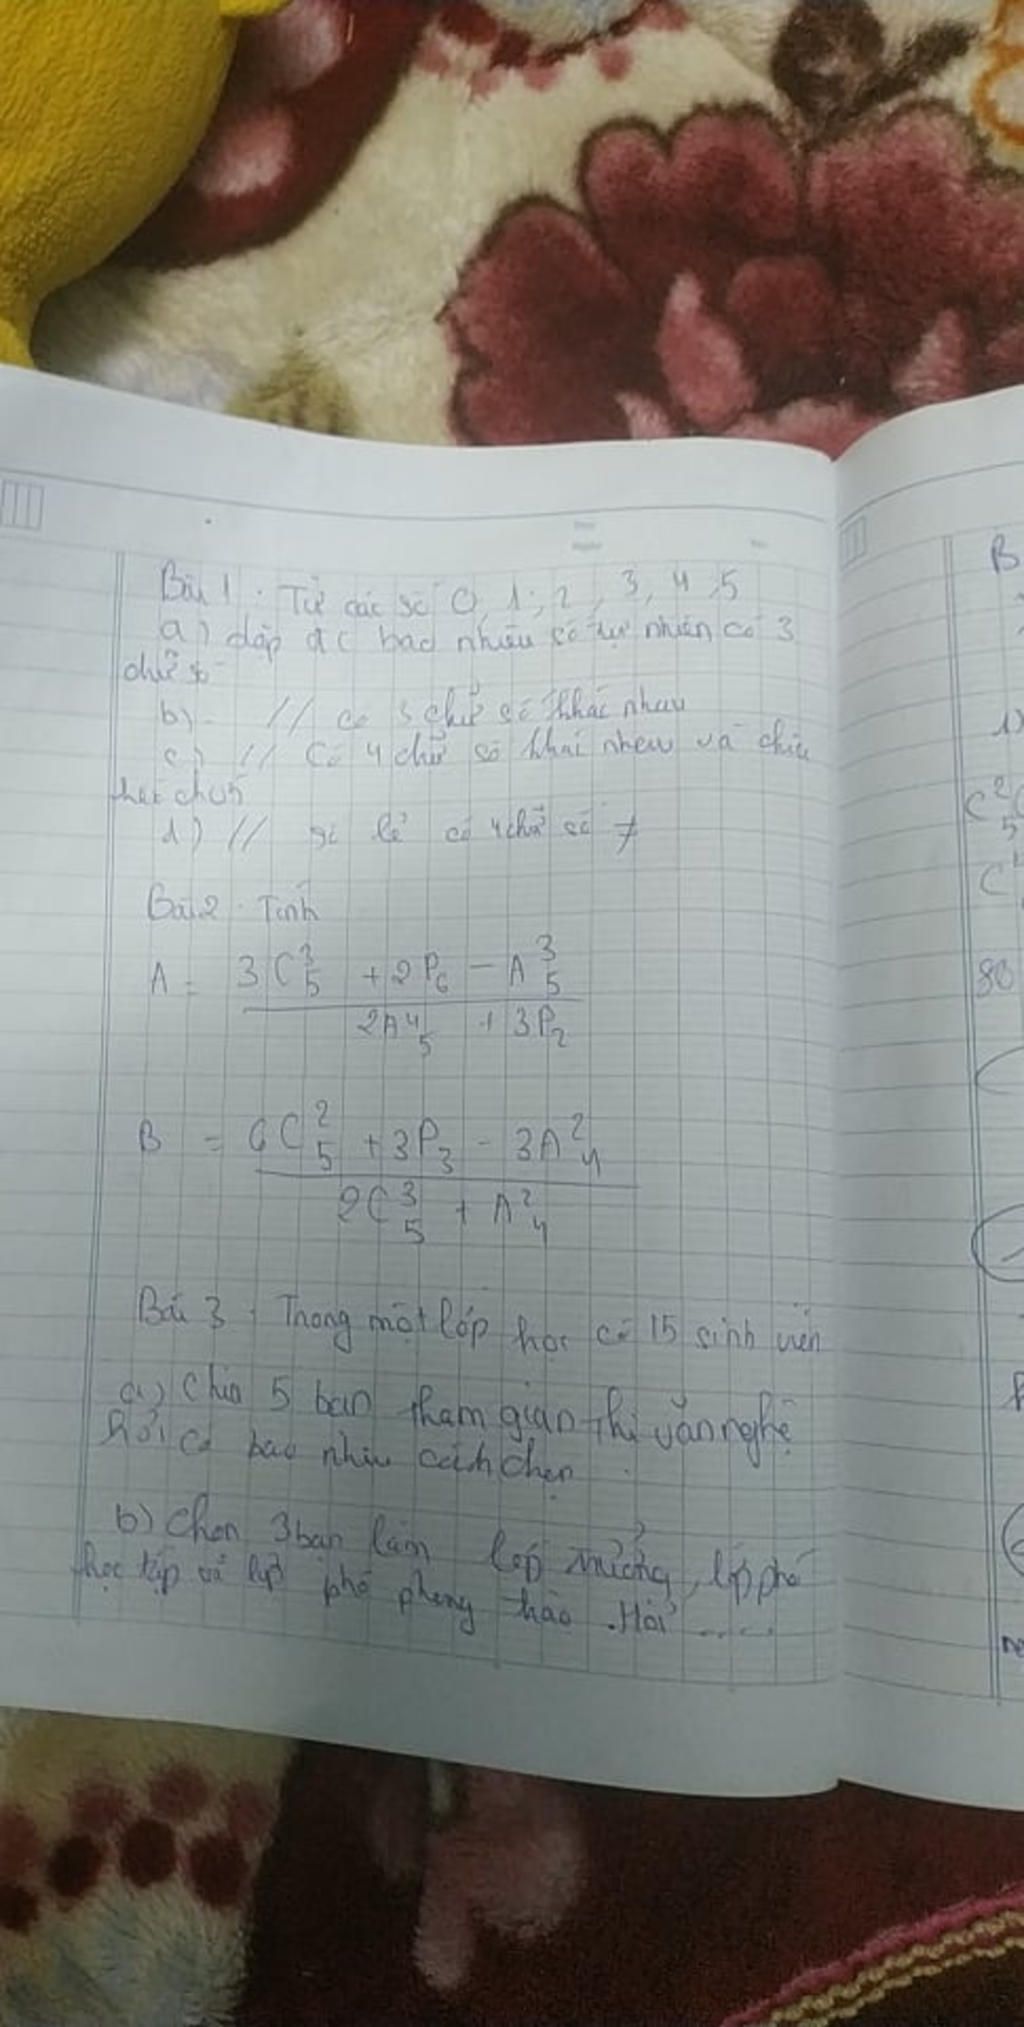 Bài 1: Từ các số 0, 1; 2, 3, 4, 5
a) lập đc bao nhiêu số tự nhiên có 3
chữ số
b) // có 3 chữ số khác nhau
c) // Có 4 chữ số khác nhau và chia
hết cho 5
d) // số lẻ có 4 chữ số ≠
Bài 2. Tính
A = (3C³₅ + 2P₆ - A³₅) / (2A⁴₅ + 3P₂)
B = (6C²₅ + 3P₃ - 3A²₄) / (2C³₅ + A²₄)
Bài 3. Trong một lớp học có 15 sinh viên
a) Chọn 5 bạn tham gian thi văn nghệ
hỏi có bao nhiu cách chọn
b) Chọn 3 bạn làm lớp trưởng, lớp phó
học tập và lớp phó phong trào. Hỏi .....
B
1)
C²₅
C
80